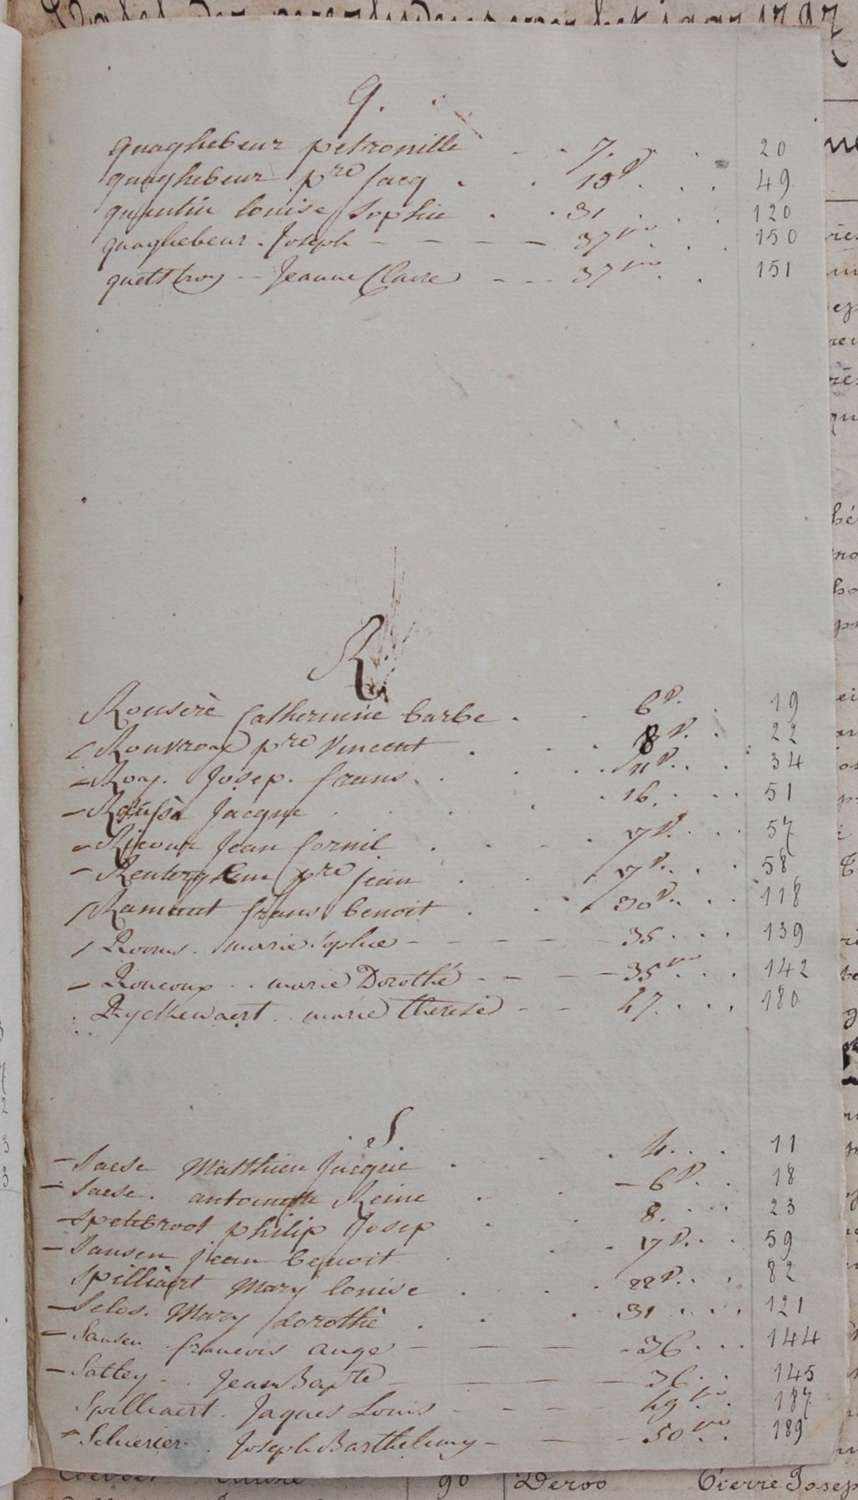 Q.
quaghebeur petronille . . 7. . 20
quaghebeur pre Jacq . . 13 v . . . 49
quentin louise Sophie . . 31 . . . 120
quaghebeur . Joseph - - - - 37 vso . . 150
Jeanne Claire - - - 37 vso . . 151
R
Catherinne barbe . . 6 v. . 19
Rouvroye pre Vincent . . 8 v. . 22
- Roy. Josep. frans. . . . 11 v. . . 34
Jacque . . . . 16. . . . 51
- Ricour Jean Cornil . . . 17 v. . . . 57
pre jean . . . 17 v. . . . 58
Ramaut frans benoit . . . 30 v. . . . 118
/ Rooms. marie Sophie - - - - 35 . . . 139
- Roucoux . . marie Dorothé - - - 35 vso . . . 142
. Ryckewaert . marie therese - - 47. . . . 180
S.
- Saese Matthieu Jacque . . . 4. . . . 11
- Saese . antoinette Reine . . - 6 v. . . 18
- Spetebroot philip Josep . . 8. . . . 23
- Sansen jean benoit . . . 17 v. . . . 59
Spilliaert Mary louise . . . 22 v. . . . 82
- Selos. Mary dorothé . . . 31 . . . . 121
- Sansen francois ange - - - - 36. . . . 144
- Sattey - . Jean Bapte - - - - 36. . . 145
Spilliaert . Jaques Louis - - - - 49 vso . . 187
Joseph Barthelemy - - - 50 vso . . 189
90
Deroo
Pierre Josep